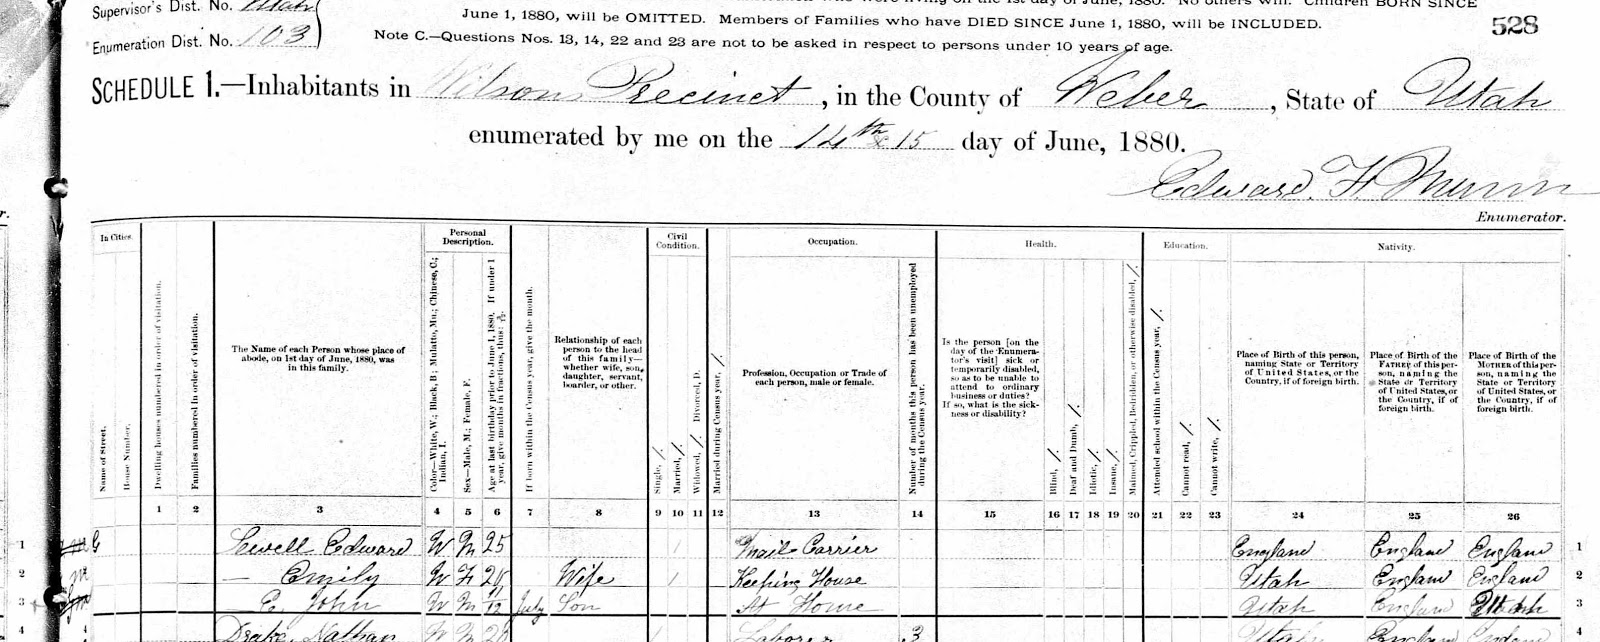 Supervisor's Dist. No. Utah
Enumeration Dist. No. 103
June 1, 1880, will be OMITTED. Members of Families who have DIED SINCE June 1, 1880, will be INCLUDED.
Note C.—Questions Nos. 13, 14, 22 and 23 are not to be asked in respect to persons under 10 years of age.
528
SCHEDULE 1.—Inhabitants in Wilson Precinct, in the County of Weber, State of Utah
enumerated by me on the 14th & 15 day of June, 1880.
Edward. H.
Enumerator.
In Cities.
Name of Street.
House Number.
Dwelling houses numbered in order of visitation.
Families numbered in order of visitation.
The Name of each Person whose place of abode, on 1st day of June, 1880, was in this family.
Personal Description.
Color—White, W.; Black, B; Mulatto, Mu.; Chinese, C.; Indian, I.
Sex—Male, M.; Female, F.
Age at last birthday prior to June 1, 1880. If under 1 year, give months in fractions, thus: 3/12.
If born within the Census year, give the month.
Relationship of each person to the head of this family—whether wife, son, daughter, servant, boarder, or other.
Civil Condition.
Single, /.
Married, /.
Widowed, /. Divorced, D.
Married during Census year, /.
Occupation.
Profession, Occupation or Trade of each person, male or female.
Number of months this person has been unemployed during the Census year.
Health.
Is the person [on the day of the Enumerator's visit] sick or temporarily disabled, so as to be unable to attend to ordinary business or duties? If so, what is the sickness or disability?
Blind, /.
Deaf and Dumb, /.
Idiotic, /.
Insane, /.
Maimed, Crippled, Bedridden, or otherwise disabled, /.
Education.
Attended school within the Census year, /.
Cannot read, /.
Cannot write, /.
Nativity.
Place of Birth of this person, naming State or Territory of United States, or the Country, if of foreign birth.
Place of Birth of the FATHER of this person, naming the State or Territory of United States, or the Country, if of foreign birth.
Place of Birth of the MOTHER of this person, naming the State or Territory of United States, or the Country, if of foreign birth.
1 2 3 4 5 6 7 8 9 10 11 12 13 14 15 16 17 18 19 20 21 22 23 24 25 26
1 Edward W M 25 Mail Carrier England England England 1
2 — Emily W F Wife / Keeping House Utah England England 2
3 — E. John W M 11/12 July Son At Home Utah England 3
4 Drake, Nathan W M Laborer 3 Utah England 4